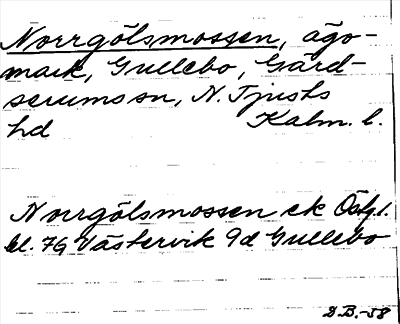 Norrgölsmossen, ägo-
mark, Gullebo, Gärd-
serums sn, N. Tjusts
hd Kalm. l.
Norrgölsmossen ek Östg. l.
bl. 79 Västervik 9d Gullebo
D.B.-58